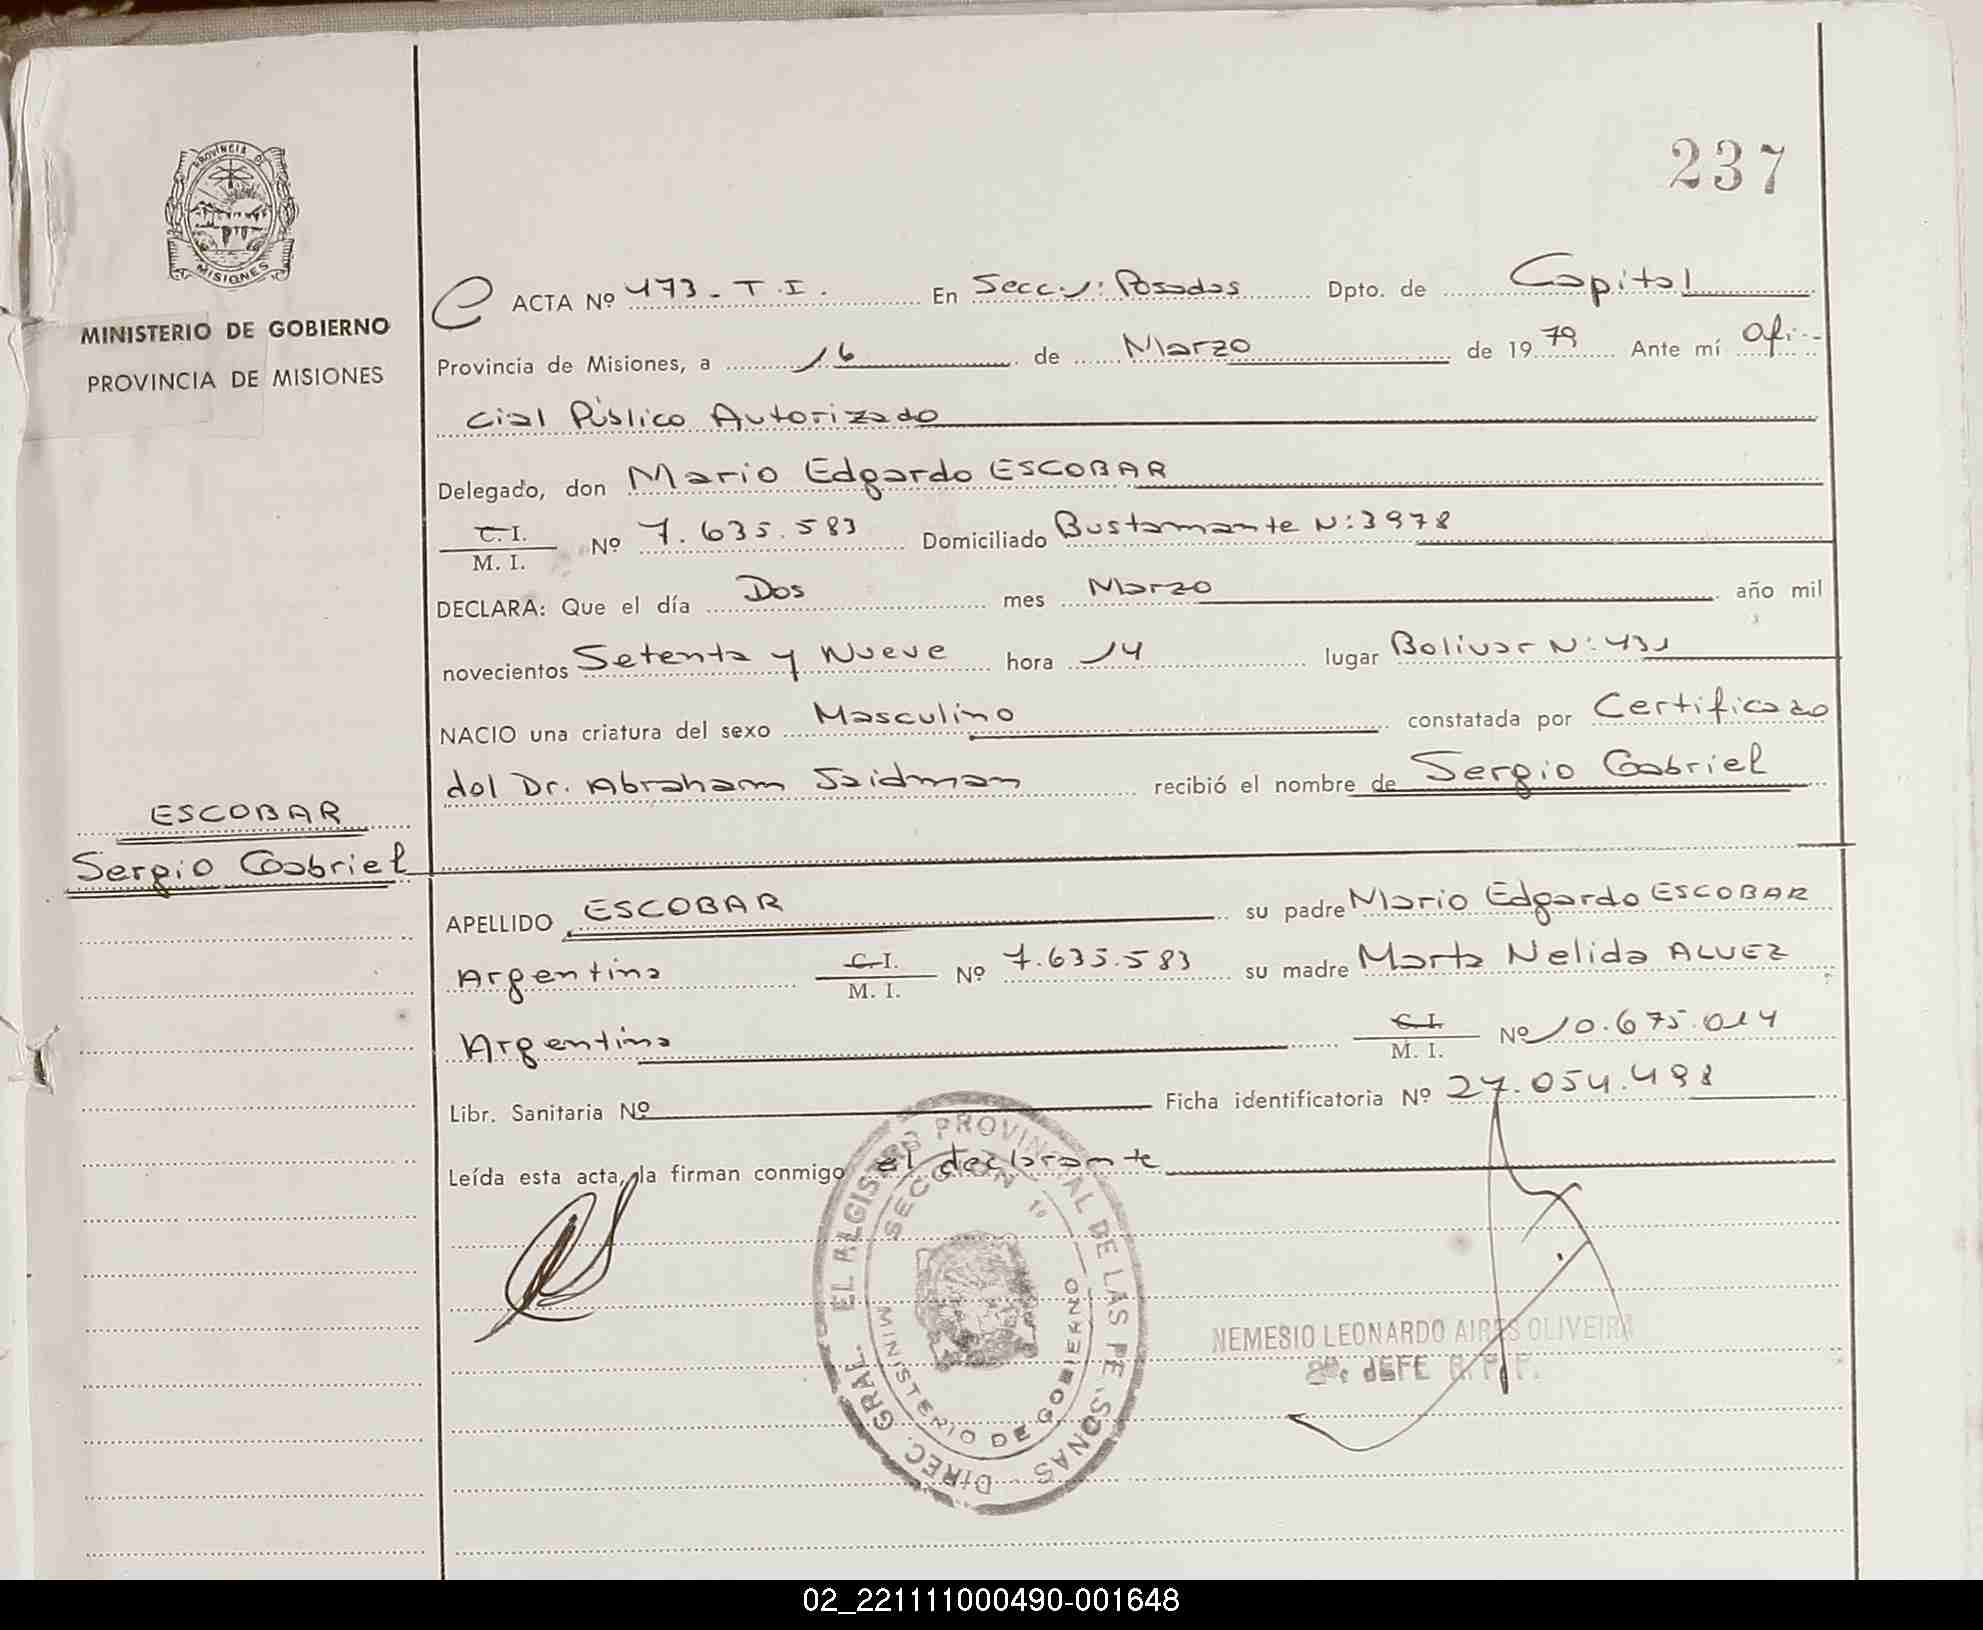 237
PROVINCIA DE
MISIONES
MINISTERIO DE GOBIERNO
PROVINCIA DE MISIONES
ACTA Nº 473 - T. I. En Posadas Dpto. de Capital
Provincia de Misiones, a 16 de Marzo de 1979 Ante mí Ofi-
cial Público Autorizado
Delegado, don Mario Edgardo ESCOBAR
C. I.
M. I. Nº 7.635.583 Domiciliado Bustamante Nº 3978
DECLARA: Que el día Dos mes Marzo año mil
novecientos Setenta y Nueve hora 14 lugar Bolivar Nº 431
NACIO una criatura del sexo Masculino constatada por Certificado
del Dr. Abraham Saidman recibió el nombre de Sergio Gabriel
ESCOBAR
Sergio Gabriel
APELLIDO ESCOBAR su padre Mario Edgardo ESCOBAR
Argentina C. I.
M. I. Nº 7.635.583 su madre Marta Nelida ALVEZ
Argentina C. I.
M. I. Nº 10.675.014
Libr. Sanitaria Nº Ficha identificatoria Nº 27.054.498
Leída esta acta, la firman conmigo el declarante
DIREC. GRAL. EL REGISTRO PROVINCIAL DE LAS PERSONAS
SECCION 1º
MINISTERIO DE GOBIERNO
NEMESIO LEONARDO AIRES OLIVEIRA
2º. JEFE R. P. P.
02_221111000490-001648